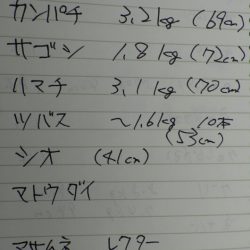 カンパチ 3.2kg (69cm)
サゴシ 1.8kg (72cm)
ハマチ 3.1kg (70cm)
ツバス ~1.6kg 10本
(53cm)
シオ (41cm)
マトウダイ
レフター